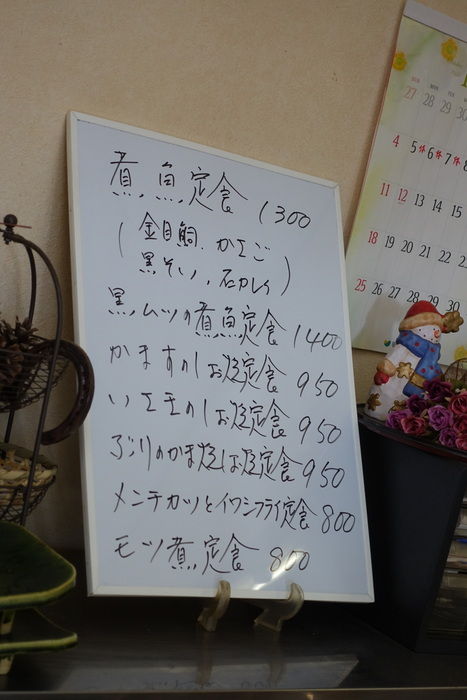 煮魚定食 1300
(金目鯛、かさご
黒そい、石かれい)
黒ムツの煮魚定食 1400
かますのしお焼定食 950
いさきのしお焼定食 950
ぶりのかま焼しお焼定食 950
メンチカツとイワシフライ定食 800
モツ煮定食
27 28 29 30
4 5 休 6 休 7 休 8
11 12 13 14 15
18 19 20 21 22
25 26 27 28 29 30